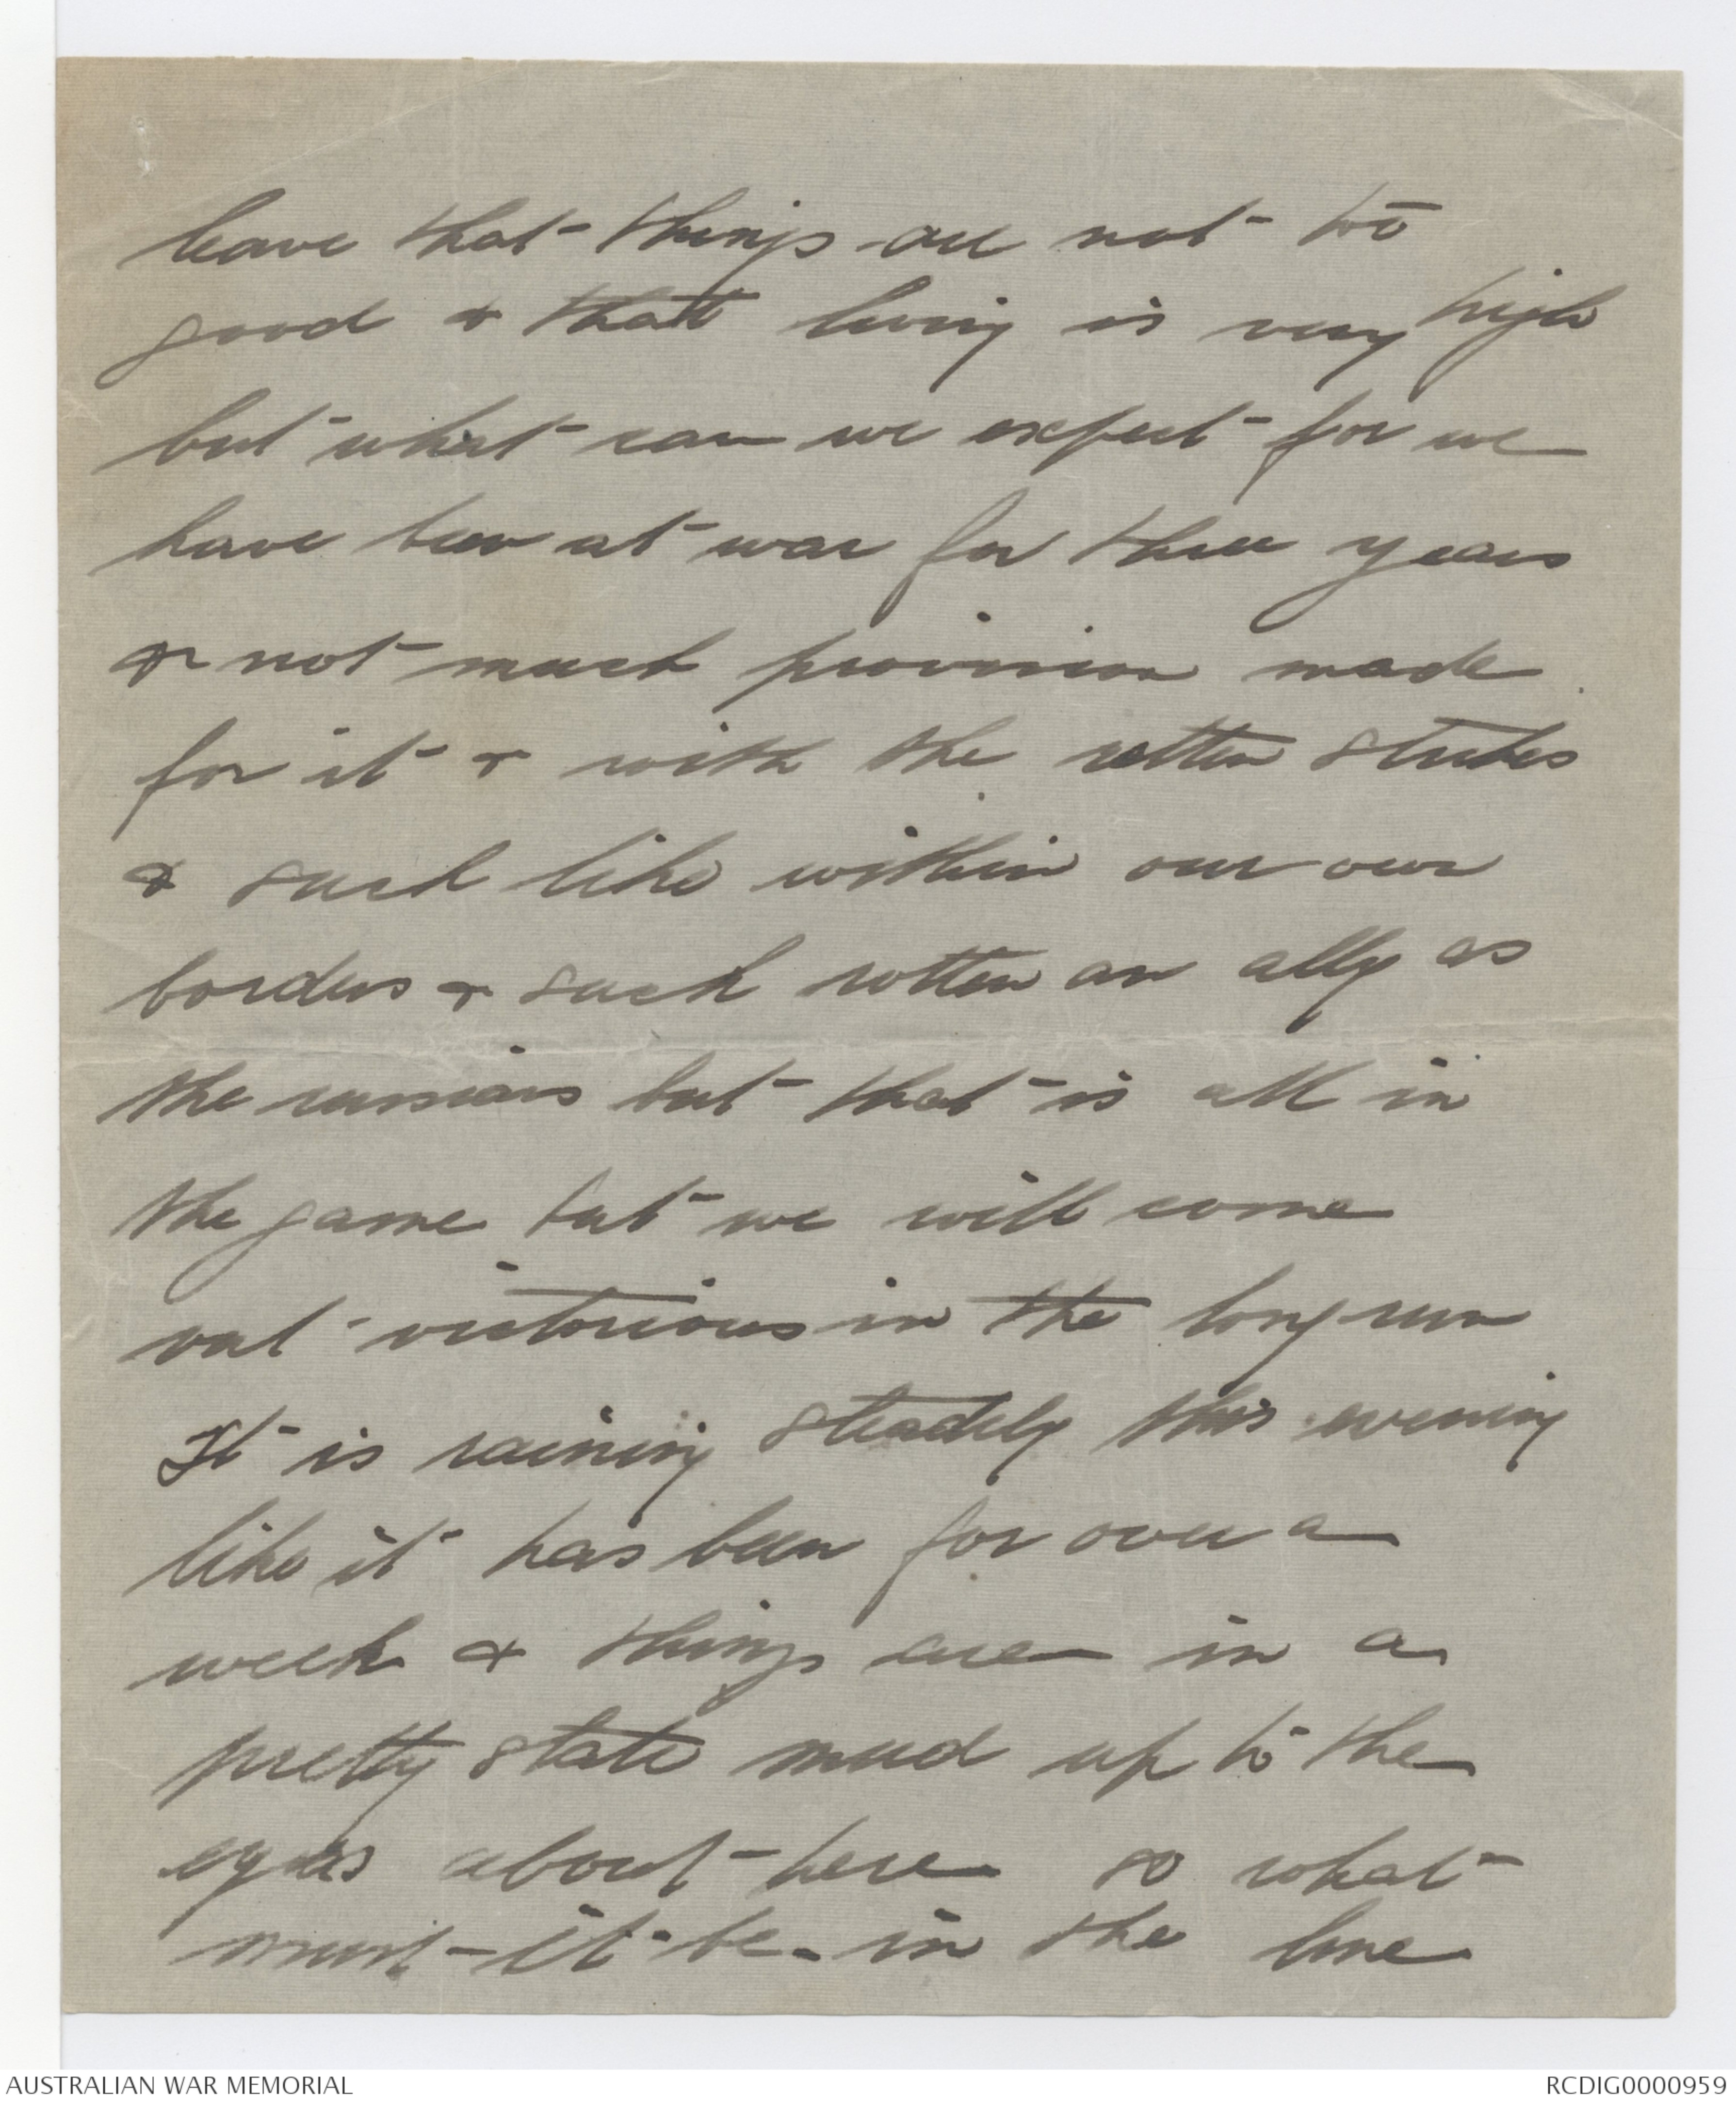 leave that things are not to
good & that living is very high
but what can we expect for we
have been at war for three years
& not much provision made
for it & with the rotten strikes
& such like within our own
borders & such rotten an ally as
the russians but that is all in
the game but we will come
out victorious in the long run
It is raining steadily this evening
like it has been for over a
week & things are in a
pretty state mud up to the
eyes about here so what
must it be in the line
AUSTRALIAN WAR MEMORIAL
RCDIG0000959